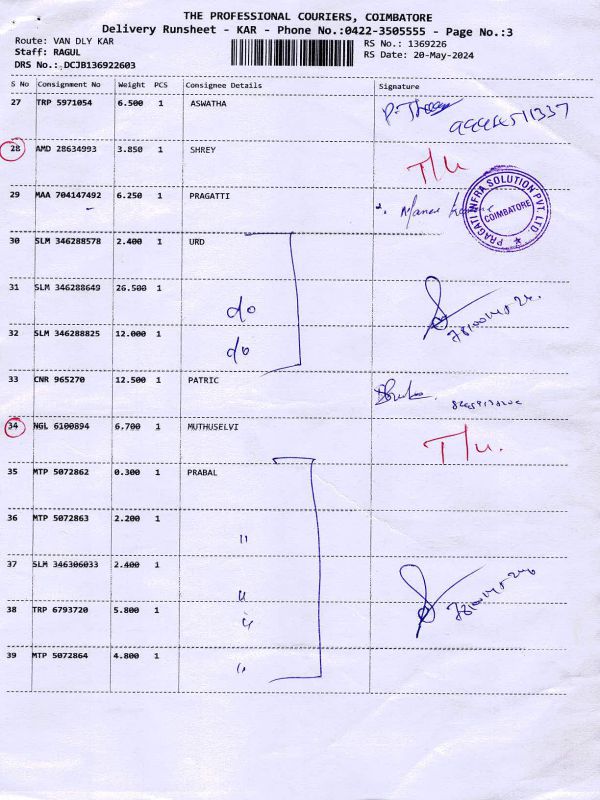 THE PROFESSIONAL COURIERS, COIMBATORE
Delivery Runsheet - KAR - Phone No.:0422-3505555 - Page No.:3
Route: VAN DLY KAR
RS No.: 1369226
Staff: RAGUL
RS Date: 20-May-2024
DRS No.: DCJB136922603
S No Consignment No Weight PCS Consignee Details Signature
27 TRP 5971054 6.500 1 ASWATHA
28 AMD 28634993 3.850 1 SHREY T/u
29 MAA 704147492 6.250 1 PRAGATTI
PRAGATI INFRA SOLUTION PVT. LTD
COIMBATORE
30 SLM 346288578 2.400 1 URD
31 SLM 346288649 26.500 1 do
32 SLM 346288825 12.000 1 do
33 CNR 965270 12.500 1 PATRIC
34 NGL 6100894 6.700 1 MUTHUSELVI T/u.
35 MTP 5072862 0.300 1 PRABAL
36 MTP 5072863 2.200 1 "
37 SLM 346306033 2.400 1 "
38 TRP 6793720 5.800 1 "
39 MTP 5072864 4.800 1 "